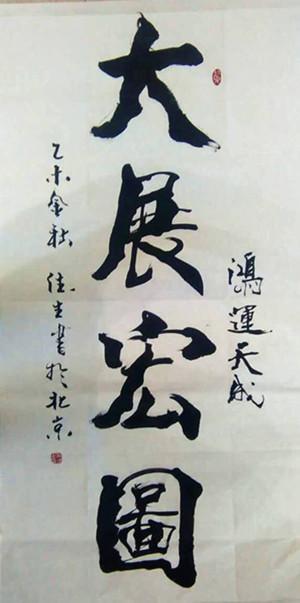 鴻運天成
大展宏圖
乙未金秋 佳生書於北京